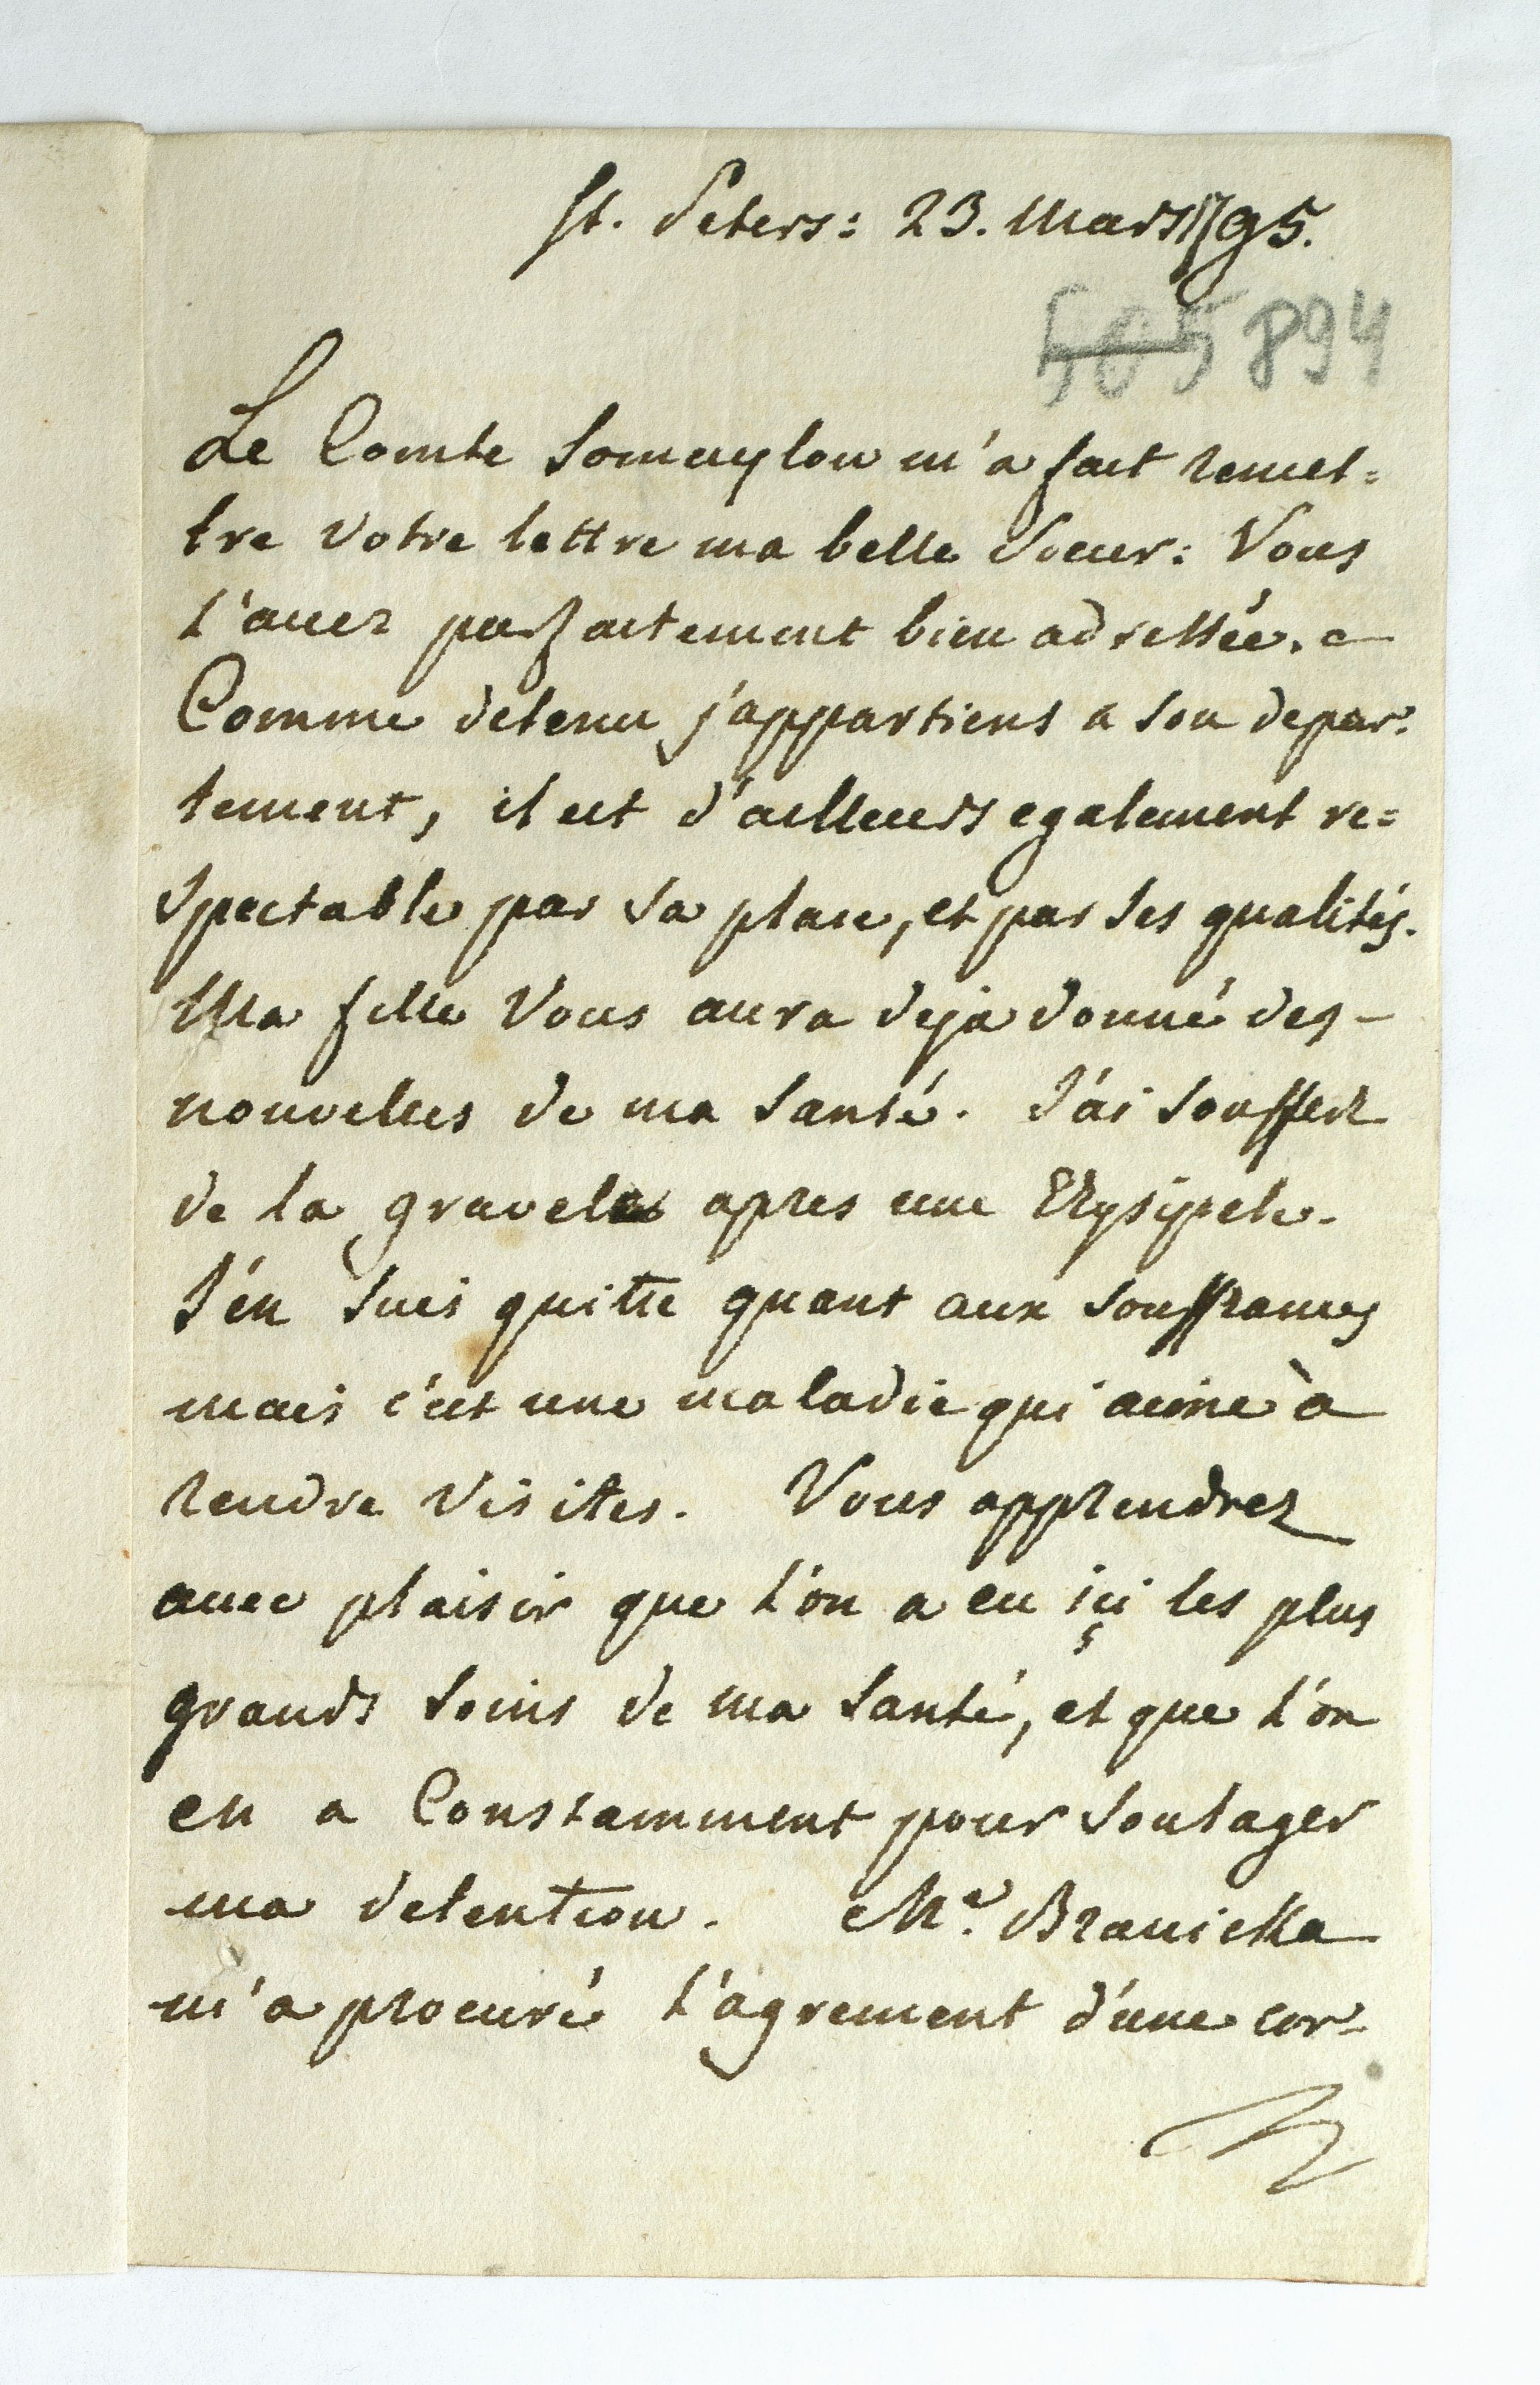 St. Peters: 23. Mars 1795.
505 894
Le Comte Samuylow m'a fait remet=
tre votre lettre ma belle Soeur: Vous
l'avez parfaitement bien adressée.
Comme detenu j'appartiens a son depar=
tement, il est d'ailleurs egalement re=
spectable par sa place, et par ses qualités.
Ma fille Vous aura deja donné des
nouvelles de ma santé. J'ai souffert
de la gravele apres une Erysipele.
J'en suis quitte quant aux souffrances
mais c'est une maladie qui aime à
rendre visites. Vous apprendrez
avec plaisir que l'on a eu içi les plus
grands soins de ma santé, et que l'on
en a Constamment pour soulager
ma detention. Me. Branicka
m'a procuré l'agrement d'une cor=